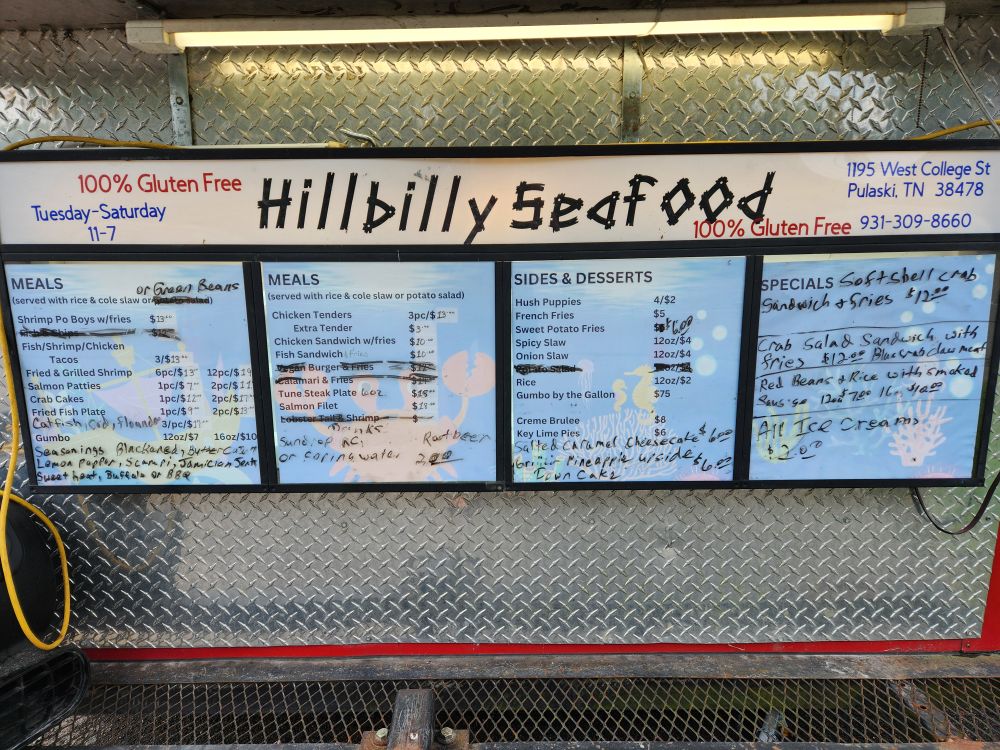 100% Gluten Free
Tuesday-Saturday
11-7
Hillbilly Seafood
100% Gluten Free
1195 West College St
Pulaski, TN 38478
931-309-8660
MEALS or Green Beans
(served with rice & cole slaw or potato salad)
Shrimp Po Boys w/fries $13
Fish & Chips
Fish/Shrimp/Chicken
Tacos 3/$13
Fried & Grilled Shrimp 6pc/$13 12pc/$19
Salmon Patties 1pc/$7 2pc/$11
Crab Cakes 1pc/$12 2pc/$17
Fried Fish Plate 1pc/$9 2pc/$13
Catfish, Cod, Flounder 3pc/$17
Gumbo 12oz/$7 16oz/$10
Seasonings Blackened, Butter
Lemon Pepper, Scampi, Jamician
Sweet heat, Buffalo or BBQ
MEALS
(served with rice & cole slaw or potato salad)
Chicken Tenders 3pc/$13
Extra Tender $3
Chicken Sandwich w/fries $10
Fish Sandwich & Fries $10
Vegan Burger & Fries
Calamari & Fries
Tune Steak Plate 6oz $15
Salmon Filet $18
Lobster Tail & Shrimp $
Drinks
Sundrop RC, Rootbeer
or Spring water 2.00
SIDES & DESSERTS
Hush Puppies 4/$2
French Fries $5
Sweet Potato Fries $6.00
Spicy Slaw 12oz/$4
Onion Slaw 12oz/$4
Potato Salad
Rice 12oz/$2
Gumbo by the Gallon $75
Creme Brulee $8
Key Lime Pies $6
Salted Caramel Cheesecake $6.00
Pineapple upside $6.00
Down Cake
SPECIALS Softshell crab
Sandwich & fries $12.00
Crab Salad Sandwich with
fries $12.00 Blue crab claw meat
Red Beans & Rice with smoked
Sausage 12oz $7.00 16 $10.00
All Ice Creams
$2.00